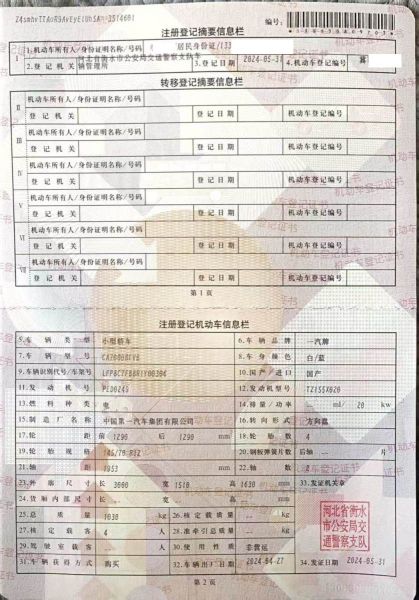 注册登记摘要信息栏
1.机动车所有人/身份证明名称/号码 居民身份证/133
2.登记机关 河北省衡水市公安局交通警察支队车辆管理所 3.登记日期 2024-05-31 4.机动车登记编号 冀
转移登记摘要信息栏
II 机动车所有人/身份证明名称/号码
登记机关 登记日期 机动车登记编号
III 机动车所有人/身份证明名称/号码
登记机关 登记日期 机动车登记编号
IV 机动车所有人/身份证明名称/号码
登记机关 登记日期 机动车登记编号
V 机动车所有人/身份证明名称/号码
登记机关 登记日期 机动车登记编号
VI 机动车所有人/身份证明名称/号码
登记机关 登记日期 机动车登记编号
VII 机动车所有人/身份证明名称/号码
登记机关 登记日期 机动车登记编号
第1页
注册登记机动车信息栏
5.车辆类型 小型轿车 6.车辆品牌 一汽牌
7.车辆型号 8.车身颜色 白/蓝
9.车辆识别代号/车架号 10.国产/进口 国产
11.发动机号 12.发动机型号
13.燃料种类 电 14.排量/功率 ml/ 20 kw
15.制造厂名称 中国第一汽车集团有限公司 16.转向形式 方向盘
17.轮距 前 1290 后 1290 mm 18.轮胎数 4
19.轮胎规格 145/70 R12 20.钢板弹簧片数 后轴 片
21.轴距 1953 mm 22.轴数 2
23.外廓尺寸 长 3000 宽 1510 高 1630 mm 33.发证机关章
24.货厢内部尺寸 长 宽 高 mm
25.总质量 1030 kg 26.核定载质量 kg
27.核定载客 4 人 28.准牵引总质量 kg
29.驾驶室载客 人 30.使用性质 非营运
31.车辆获得方式 购买 32.车辆出厂日期 2024-04-27 34.发证日期 2024-05-31
河北省衡水市公安局交通警察支队
第2页